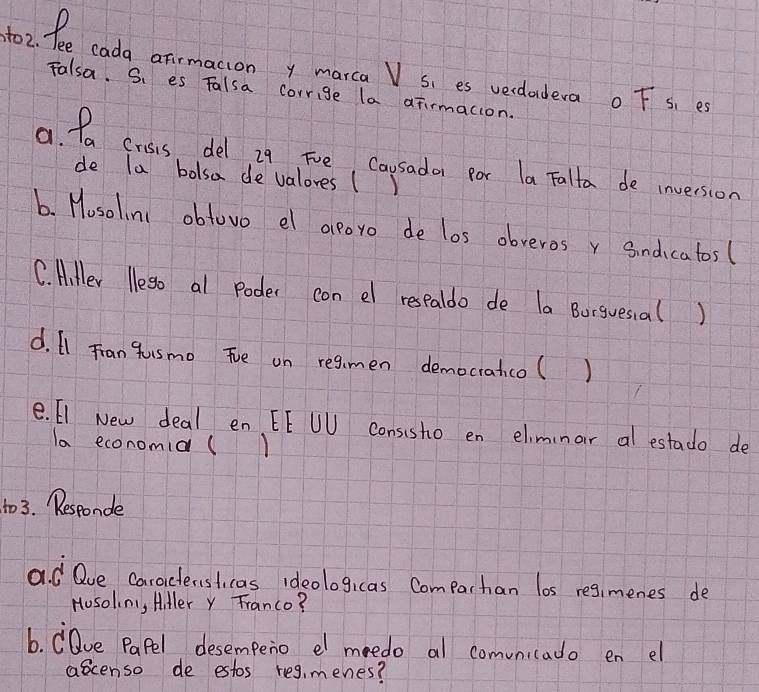 to2. Lee cada afirmacion y marca V si es verdadera o F si es
Falsa. Si es Falsa corrige la afirmacion.
a. La crisis del 29 Fue Causada por la Falta de inversion
de la bolsa de valores ( )
b. Musolini obtuvo el apoyo de los obreros y Sindicatos (
C. Hitler llego al Poder con el respaldo de la Burguesia ( )
d. El Franquismo Fue un regimen democratico ( )
e. El New deal en EE UU consistio en eliminar al estado de
la economia ( )
to3. Responde
a. ¿ Que Caracteristicas ideologicas Compartian los regimenes de
Musolini, Hitler y Franco?
b. ¿Que Papel desempeño el meedo al comunicado en el
ascenso de estos regimenes?